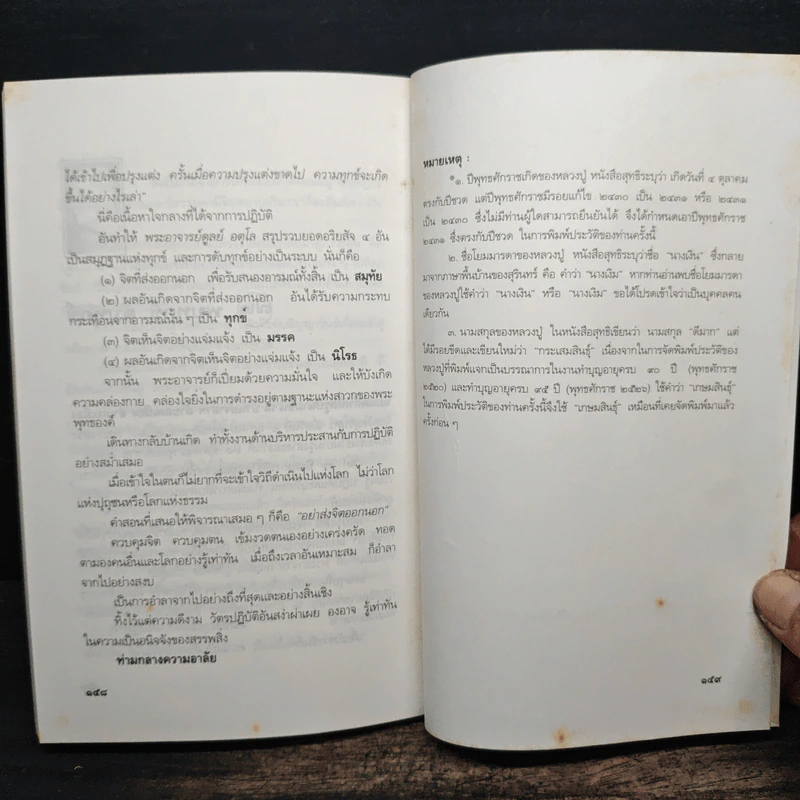 ได้เข้าไปเพื่อปรุงแต่ง ครั้นเมื่อความปรุงแต่งขาดไป ความทุกข์จะเกิด
ขึ้นได้อย่างไรเล่า”
นี่คือเนื้อหาใจกลางที่ได้จากการปฏิบัติ
อันทำให้ พระอาจารย์ดูลย์ อตุโล สรุปรวบยอดอริยสัจ ๔ อัน
เป็นสมุฏฐานแห่งทุกข์ และการดับทุกข์อย่างเป็นระบบ นั่นก็คือ
(๑) จิตที่ส่งออกนอก เพื่อรับสนองอารมณ์ทั้งสิ้น เป็น สมุทัย
(๒) ผลอันเกิดจากจิตที่ส่งออกนอก อันได้รับความกระทบ
กระเทือนจากอารมณ์นั้น ๆ เป็น ทุกข์
(๓) จิตเห็นจิตอย่างแจ่มแจ้ง เป็น มรรค
(๔) ผลอันเกิดจากจิตเห็นจิตอย่างแจ่มแจ้ง เป็น นิโรธ
จากนั้น พระอาจารย์ก็เปี่ยมด้วยความมั่นใจ และให้บังเกิด
ความคล่องกาย คล่องใจยิ่งในการดำรงอยู่ตามฐานะแห่งสาวกของพระ
พุทธองค์
เดินทางกลับบ้านเกิด ทำทั้งงานด้านบริหารประสานกับการปฏิบัติ
อย่างสม่ำเสมอ
เมื่อเข้าใจในตนก็ไม่ยากที่จะเข้าใจวิถีดำเนินไปแห่งโลก ไม่ว่าโลก
แห่งปุถุชนหรือโลกแห่งธรรม
คำสอนที่เสนอให้พิจารณาเสมอ ๆ ก็คือ “อย่าส่งจิตออกนอก”
ควบคุมจิต ควบคุมตน เข้มงวดตนเองอย่างเคร่งครัด ทอด
ตามองคนอื่นและโลกอย่างรู้เท่าทัน เมื่อถึงเวลาอันเหมาะสม ก็อำลา
จากไปอย่างสงบ
เป็นการอำลาจากไปอย่างถึงที่สุดและอย่างสิ้นเชิง
ทิ้งไว้แต่ความดีงาม วัตรปฏิบัติอันสง่าผ่าเผย องอาจ รู้เท่าทัน
ในความเป็นอนิจจังของสรรพสิ่ง
ท่ามกลางความอาลัย
๑๔๘
หมายเหตุ :
*๑. ปีพุทธศักราชเกิดของหลวงปู่ หนังสือสุทธิระบุว่า เกิดวันที่ ๔ ตุลาคม
ตรงกับปีชวด แต่ปีพุทธศักราชมีรอยแก้ไข ๒๔๓๐ เป็น ๒๔๓๑ หรือ ๒๔๓๑
เป็น ๒๔๓๐ ซึ่งไม่มีท่านผู้ใดสามารถยืนยันได้ จึงได้กำหนดเอาปีพุทธศักราช
๒๔๓๑ ซึ่งตรงกับปีชวด ในการพิมพ์ประวัติของท่านครั้งนี้
๒. ชื่อโยมมารดาของหลวงปู่ หนังสือสุทธิระบุว่าชื่อ “นางเงิน” ซึ่งกลาย
มาจากภาษาพื้นบ้านของสุรินทร์ คือ คำว่า “นางเงิม” หากท่านอ่านพบชื่อโยมมารดา
ของหลวงปู่ใช้คำว่า “นางเงิน” หรือ “นางเงิม” ขอได้โปรดเข้าใจว่าเป็นบุคคลคน
เดียวกัน
๓. นามสกุลของหลวงปู่ ในหนังสือสุทธิเขียนว่า นามสกุล “ดีมาก” แต่
ได้มีรอยขีดและเขียนใหม่ว่า “กระเสมสินธุ์” เนื่องจากในการจัดพิมพ์ประวัติของ
หลวงปู่ที่พิมพ์แจกเป็นบรรณาการในงานทำบุญอายุครบ ๙๐ ปี (พุทธศักราช
๒๕๒๐) และทำบุญอายุครบ ๙๕ ปี (พุทธศักราช ๒๕๒๖) ใช้คำว่า “เกษมสินธุ์”
ในการพิมพ์ประวัติของท่านครั้งนี้จึงใช้ “เกษมสินธุ์” เหมือนที่เคยจัดพิมพ์มาแล้ว
ครั้งก่อน ๆ
๑๔๙